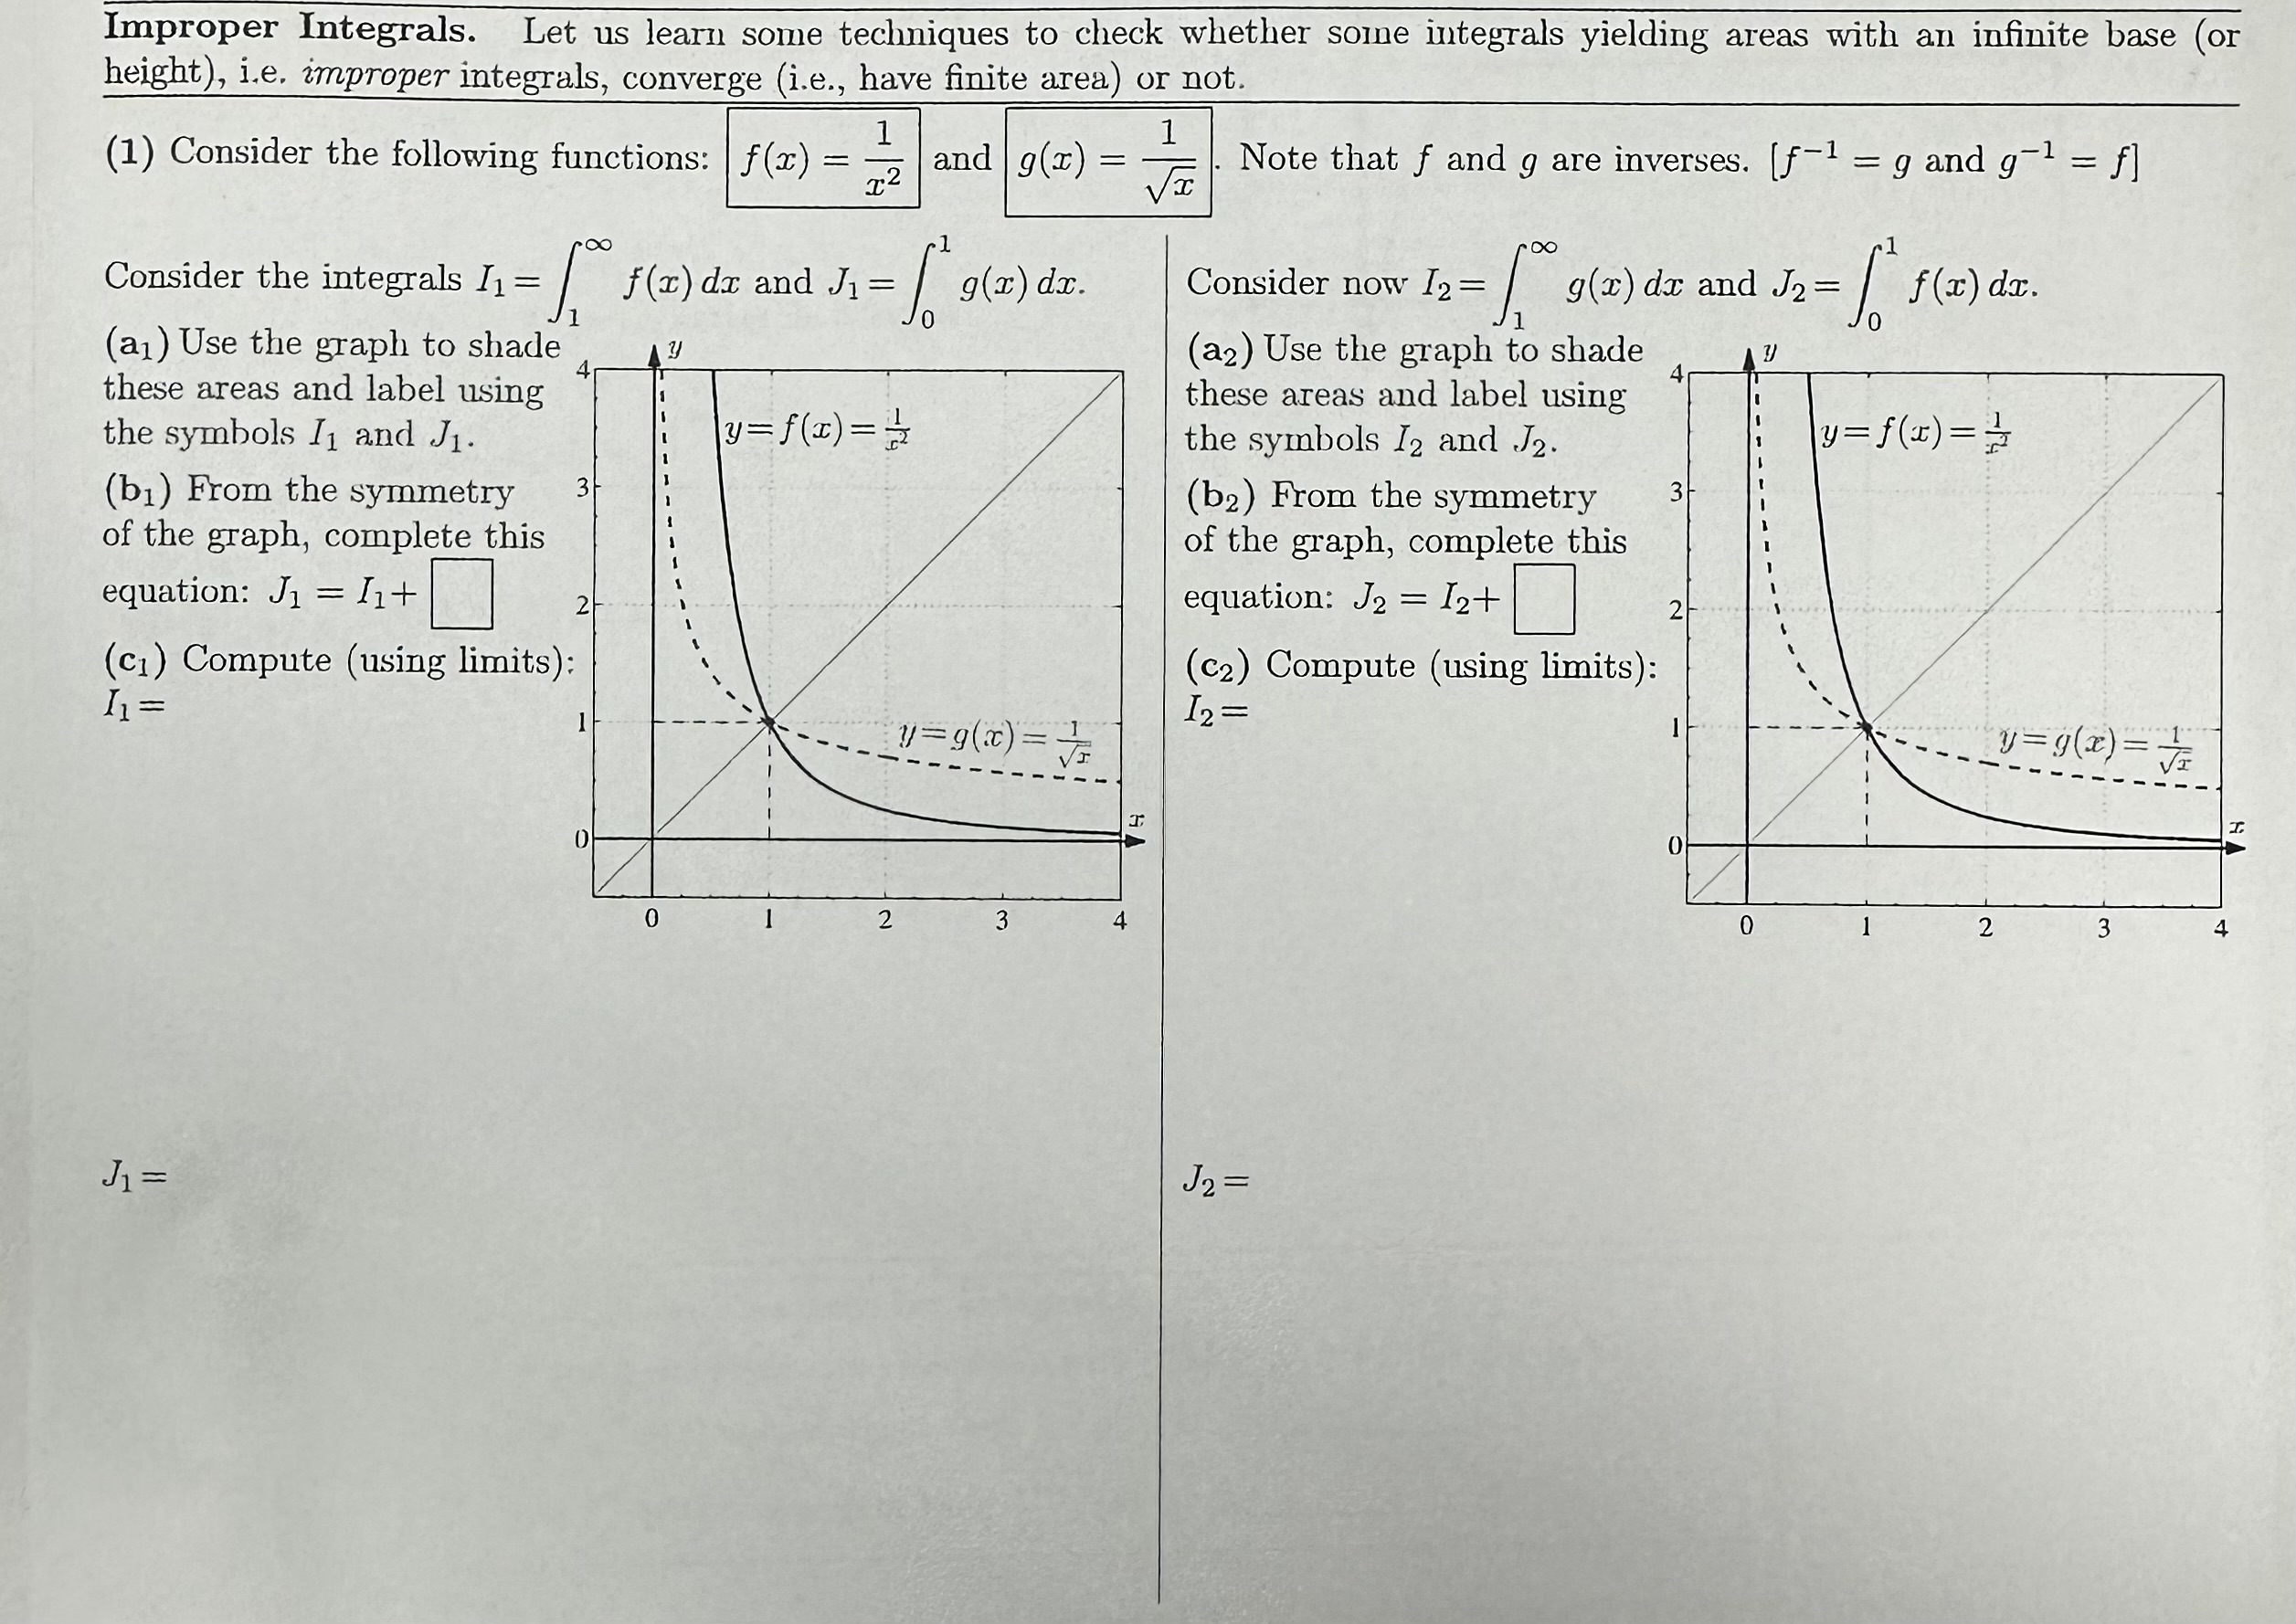 Improper Integrals. Let us learn some techniques to check whether some integrals yielding areas with an infinite base (or
height), i.e. improper integrals, converge (i.e., have finite area) or not.
(1) Consider the following functions: f(x) = 1/x² and g(x) = 1/√x. Note that f and g are inverses. [f⁻¹ = g and g⁻¹ = f]
Consider the integrals I₁ = ∫₁^∞ f(x) dx and J₁ = ∫₀¹ g(x) dx.
(a₁) Use the graph to shade
these areas and label using
the symbols I₁ and J₁.
(b₁) From the symmetry
of the graph, complete this
equation: J₁ = I₁+
(c₁) Compute (using limits):
I₁ =
y
4
3
2
1
0
y=f(x)=1/x²
y=g(x)=1/√x
x
0 1 2 3 4
J₁ =
Consider now I₂ = ∫₁^∞ g(x) dx and J₂ = ∫₀¹ f(x) dx.
(a₂) Use the graph to shade
these areas and label using
the symbols I₂ and J₂.
(b₂) From the symmetry
of the graph, complete this
equation: J₂ = I₂+
(c₂) Compute (using limits):
I₂ =
y
4
3
2
1
0
y=f(x)=1/x²
y=g(x)=1/√x
x
0 1 2 3 4
J₂ =